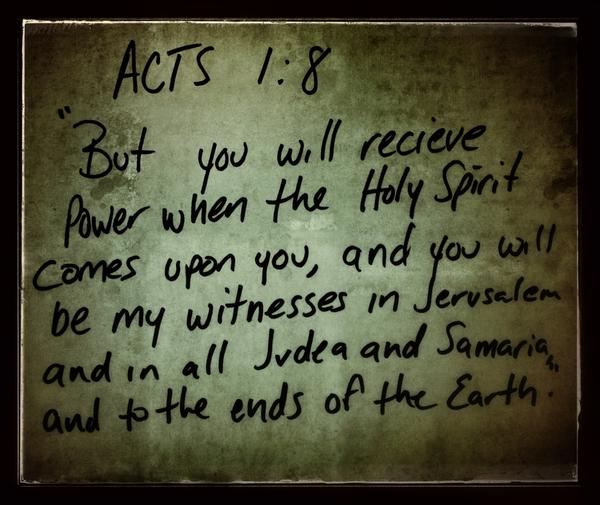 ACTS 1:8
"But you will recieve
Power when the Holy Spirit
comes upon you, and you will
be my witnesses in Jerusalem
and in all Judea and Samaria,
and to the ends of the Earth."